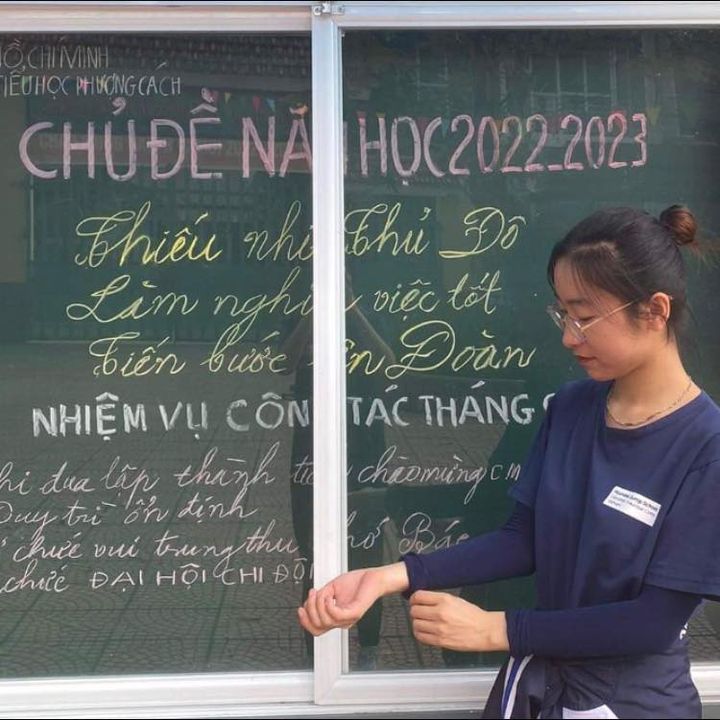 HỒ CHÍ MINH
TIỂU HỌC PHƯỢNG CÁCH
CHỦ ĐỀ NĂM HỌC 2022_2023
Thiếu nhi Thủ Đô
Làm nghìn việc tốt
Tiến bước lên Đoàn
NHIỆM VỤ CÔNG TÁC THÁNG
đua lập thành chào mừng
Duy trì ổn định
chức vui trung thu Bác
chức ĐẠI HỘI CHI ĐỘI